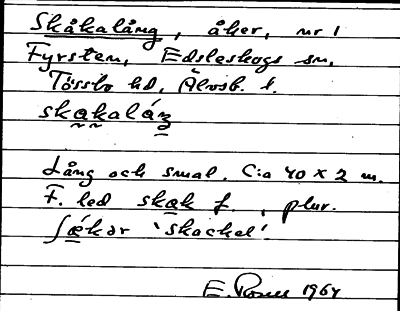 Skåkalång, åker, nr 1
Fyrsten, Edsleskogs sn,
Tössbo hd, Älvsb. l.
skakaláŋ
Lång och smal. C:a 40 x 2 m.
F. led skak f., plur.
ʃǽkər 'skackel'.
E. 1964